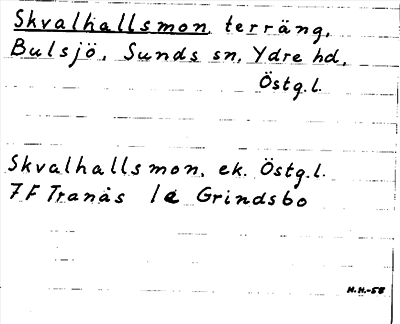 Skvalhallsmon, terräng,
Bulsjö, Sunds sn, Ydre hd,
Östg.l.
Skvalhallsmon, ek. Östg.l.
7F Tranås 1e Grindsbo
H.H.-58